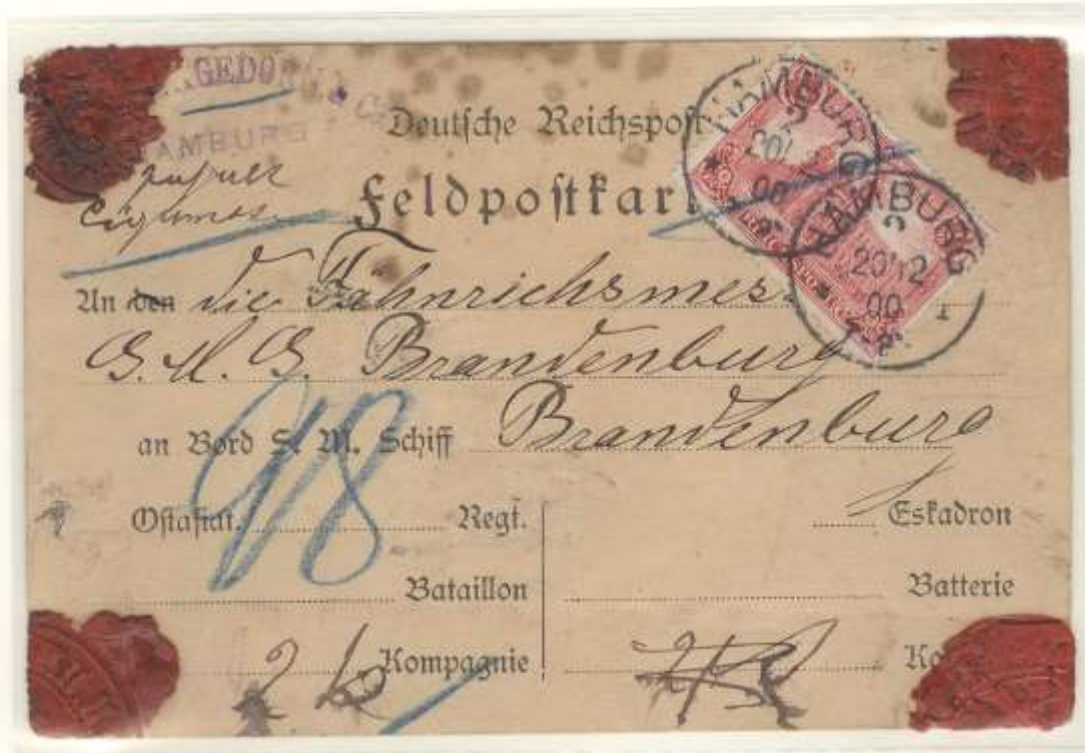 GEDO & Co
HAMBURG
Deutsche Reichspost
Feldpostkart
HAMBURG
2
20
00
HAMBURG
2
20 12
00
1
An den die Fähnrichsmes
S. M. S. Brandenburg
an Bord S. M. Schiff Brandenburg
918
Ostasiat. Regt.
Eskadron
Bataillon
Batterie
2 ko Kompagnie
Ko